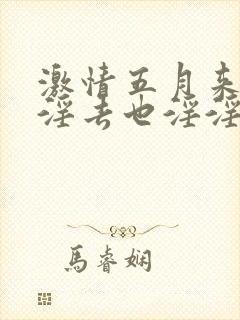 激情五月来
淫去也淫淫
馬睿娴